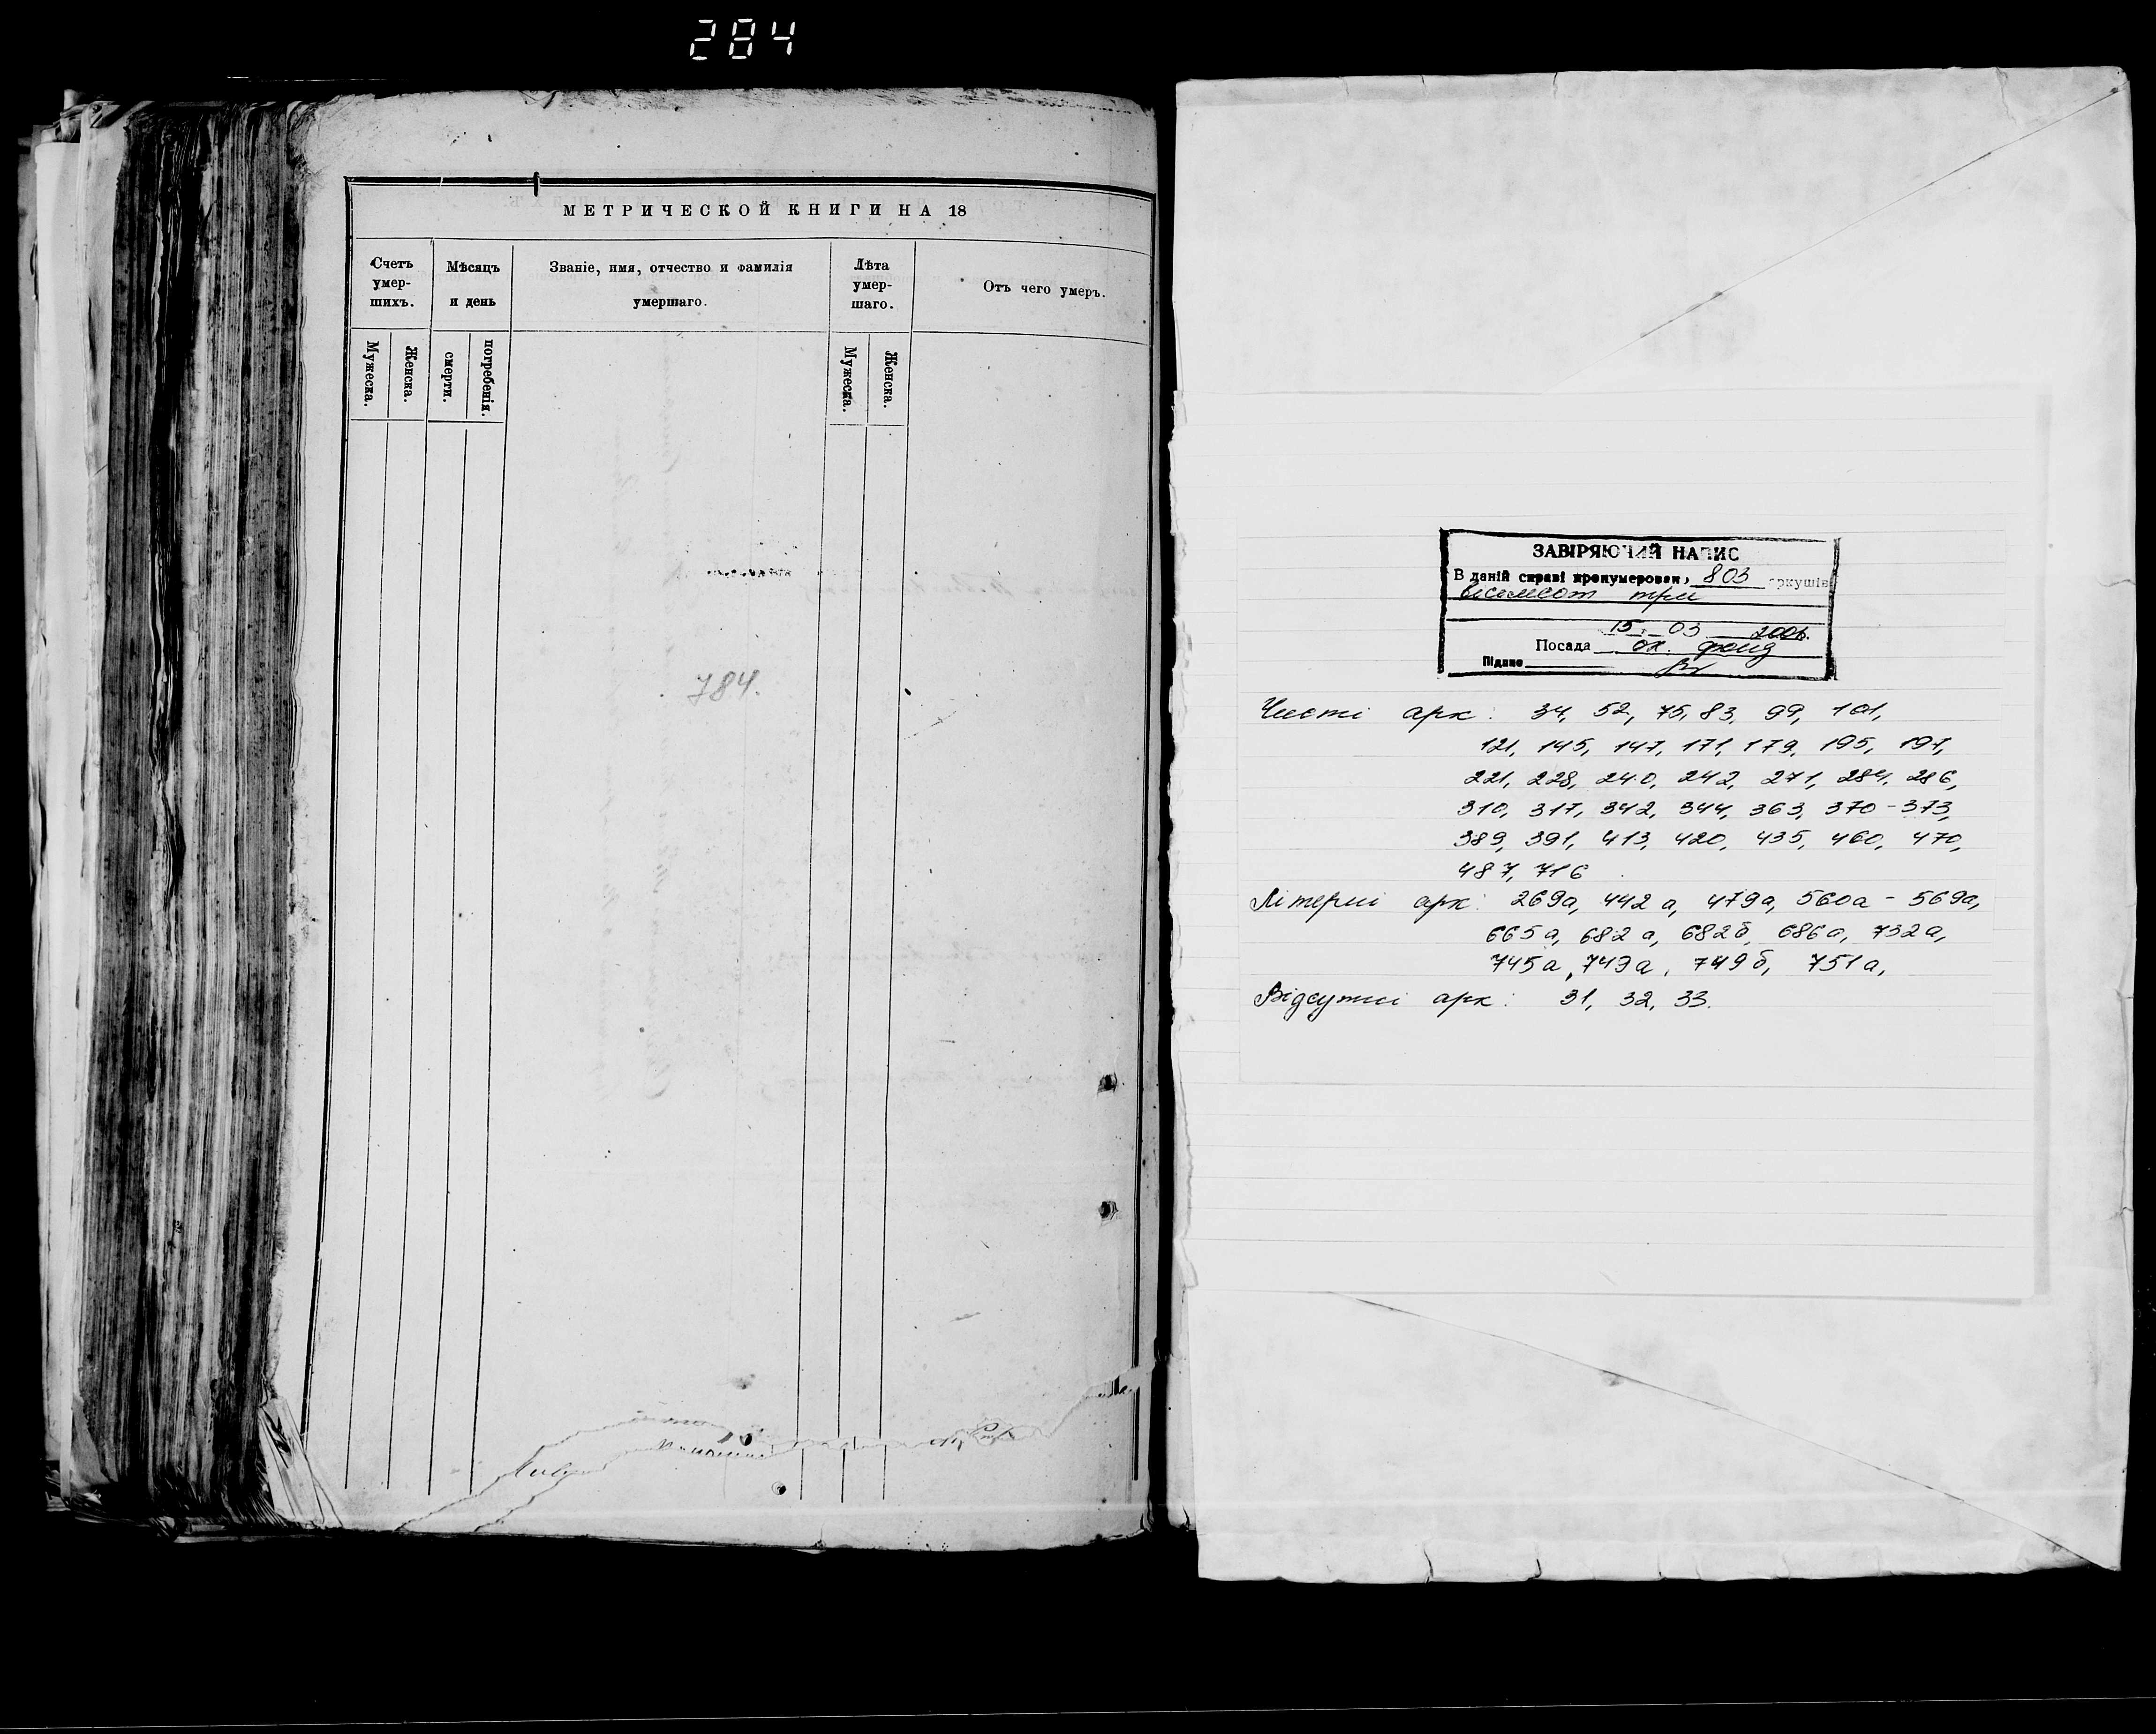 284
МЕТРИЧЕСКОЙ КНИГИ НА 18
Счетъ умер-шихъ.
Мѣсяцъ и день
Званіе, имя, отчество и фамилія умершаго.
Лѣта умер-шаго.
Отъ чего умеръ.
Мужеска.
Женска.
смерти.
погребенія.
Мужеска.
Женска.
784.
ЗАВІРЯЮЧИЙ НАПИС
В даній справі пронумерован 803 аркушів
вісімсот три
15. 03 2006.
Посада ох. фонд
Підпис
Чисті арк: 34, 52, 75, 83, 99, 101,
121, 145, 147, 171, 179, 195, 197,
221, 228, 240, 242, 271, 284, 286,
310, 317, 342, 344, 363, 370-373,
389, 391, 413, 420, 435, 460, 470,
487, 716
Літерні арк: 269а, 442а, 479а, 560а - 569а,
665а, 682а, 682б, 686а, 732а,
745а, 749а, 749б, 751а,
Відсутні арк: 31, 32, 33.